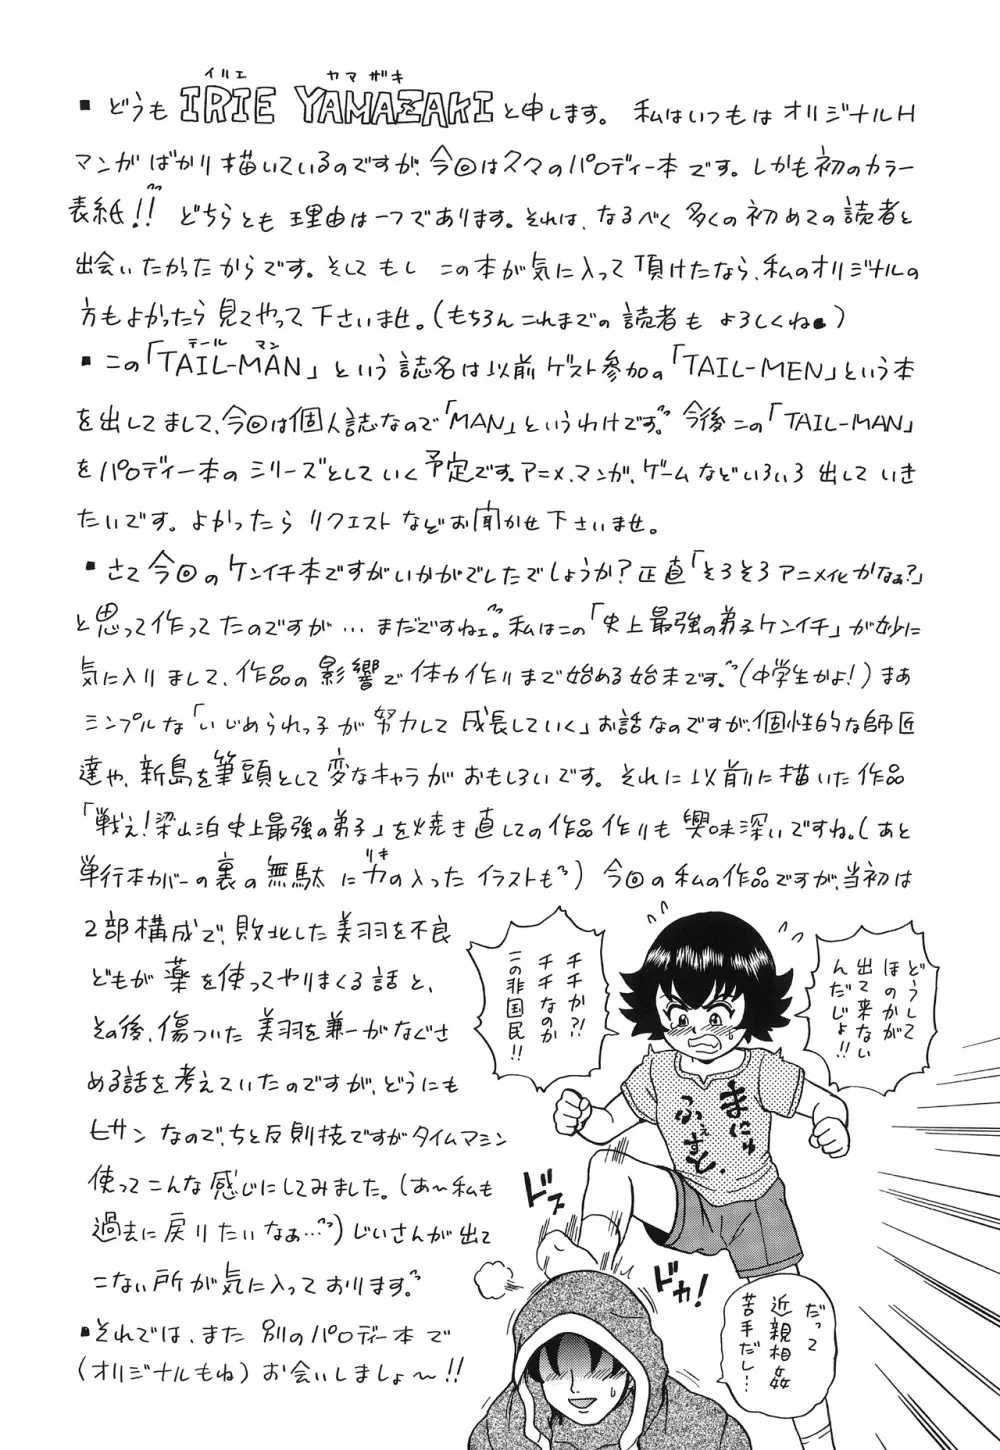 イルエ ヤマザキ
▪ どうも IRIE YAMAZAKIと申します。 私はいつもは オリジナルH
マンガばかり描いているのですが、今回は久々のパロディー本です。しかも初のカラー
表紙!! どちらとも理由は一つであります。それは、なるべく多くの初めての読者と
出会いたかったからです。そしてもし この本が気に入って頂けたなら、私のオリジナルの
方もよかったら見てやって下さいませ。(もちろんこれまでの読者もよろしくね●)
テール マン
▪ この「TAIL-MAN」という誌名は以前ゲスト参加の「TAIL-MEN」という本
を出してまして、今回は個人誌なので「MAN」というわけです。今後この「TAIL-MAN」
をパロディー本のシリーズとしていく予定です。アニメ、マンガ、ゲームなどいろいろ出していき
たいです。よかったらリクエストなどお聞かせ下さいませ。
▪ さて今回のケンイチ本ですがいかがでしたでしょうか?正直「そろそろアニメ化かなぁ?」
と思って作ってたのですが…まだですねェ。私はこの「史上最強の弟子ケンイチ」が妙に
気に入りまして、作品の影響で体力作りまで始める始末です。(中学生かよ!)まあ
シンプルな「いじめられっ子が努力して成長していく」お話なのですが、個性的な師匠
達や、新島を筆頭として変なキャラがおもしろいです。それに以前に描いた作品
「戦え!梁山泊史上最強の弟子」を焼き直しての作品作りも興味深いですね。(あと
リキ
単行本カバーの裏の無駄に力の入ったイラストも) 今回の私の作品ですが、当初は
2部構成で、敗北した美羽を不良
どもが薬を使ってやりまくる話と、
その後、傷ついた美羽を兼一がなぐさ
める話を考えていたのですが、どうにも
ヒサンなので、ちと反則技ですがタイムマシン
使ってこんな感じにしてみました。(あ〜私も
過去に戻りたいなぁ…)じいさんが出て
こない所が気に入っております。
▪ それでは、また別のパロディー本で
(オリジナルもね)お会いしましょ〜!!
どうして
ほのかが
出て来ない
んだじょ!!
チチか?!
チチなのか
この非国民!!
まにゅ
ふぇすと、
ドズ
ドカ!
だって
近親相姦
苦手だし…